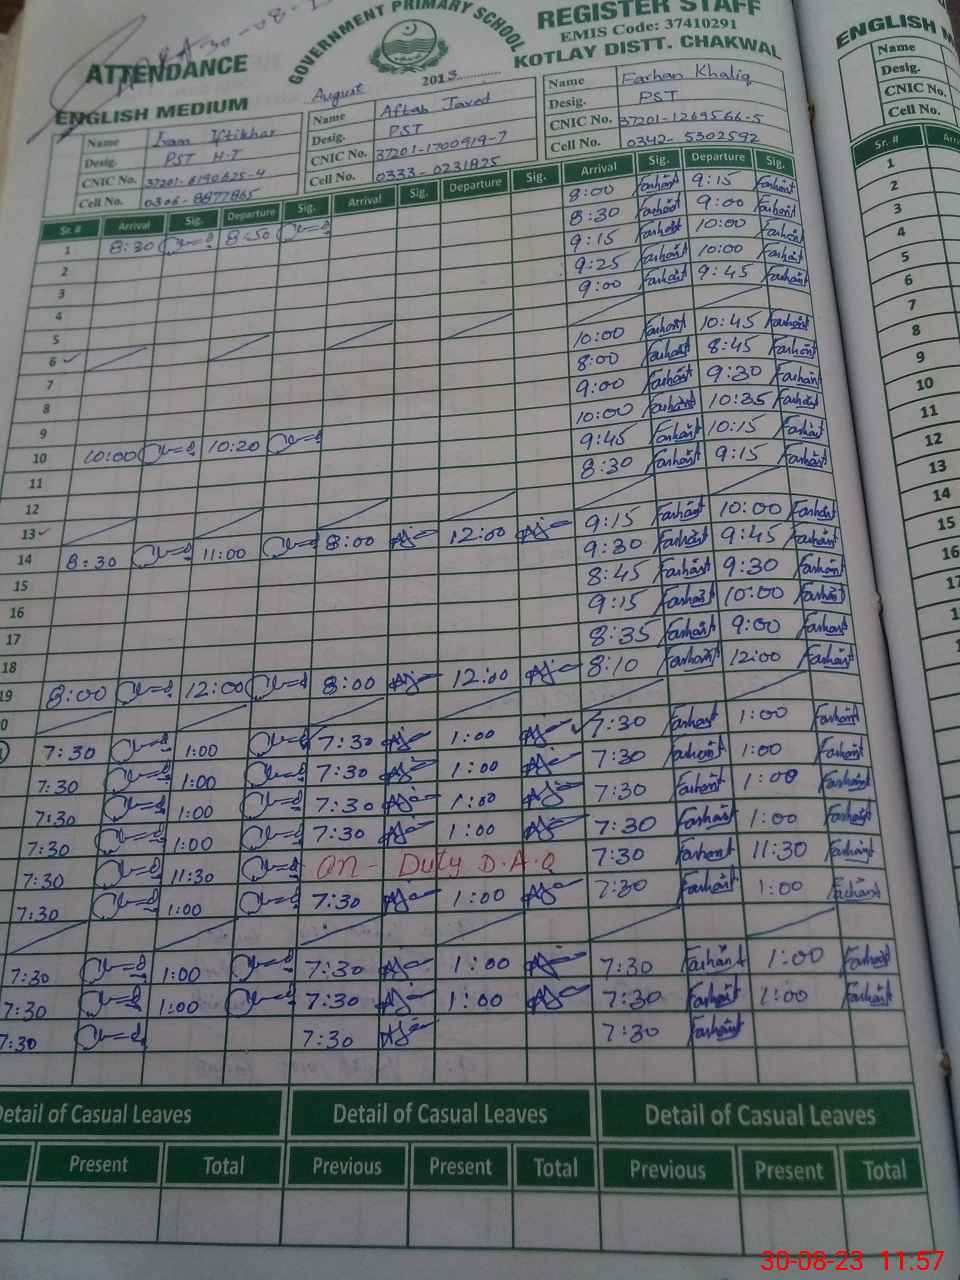 30-08-
ATTENDANCE
GOVERNMENT PRIMARY SCHOOL
REGISTER STAFF
EMIS Code: 37410291
KOTLAY DISTT. CHAKWAL
ENGLISH MEDIUM
August 2013
Name Iftikhar
Desig. PST H.T
CNIC No. 37201-6190625-4
Cell No. 0306-8977865
Name Aftab Javed
Desig. PST
CNIC No. 37201-1700919-7
Cell No. 0333-0231825
Name Farhan Khaliq
Desig. PST
CNIC No. 37201-1269566-5
Cell No. 0342-5302592
Sr. # Arrival Sig. Departure Sig. Arrival Sig. Departure Sig. Arrival Sig. Departure Sig.
1 8:30 8:50 8:00 Farhan 9:15 Farhan
2 8:30 Farhan 9:00 Farhan
3 9:15 Farhan 10:00 Farhan
4 9:25 Farhan 10:00 Farhan
5 9:00 Farhan 9:45 Farhan
6
7 10:00 Farhan 10:45 Farhan
8 8:00 Farhan 8:45 Farhan
9 9:00 Farhan 9:30 Farhan
10 10:00 10:20 10:00 Farhan 10:35 Farhan
11 9:45 Farhan 10:15 Farhan
12 8:30 Farhan 9:15 Farhan
13
14 8:30 11:00 8:00 12:00 9:15 Farhan 10:00 Farhan
15 9:30 Farhan 9:45 Farhan
16 8:45 Farhan 9:30 Farhan
17 9:15 Farhan 10:00 Farhan
18 8:35 Farhan 9:00 Farhan
19 8:00 12:00 8:00 12:00 8:10 Farhan 12:00 Farhan
0
7:30 1:00 7:30 1:00 7:30 Farhan 1:00 Farhan
7:30 1:00 7:30 1:00 7:30 Farhan 1:00 Farhan
7:30 1:00 7:30 1:00 7:30 Farhan 1:00 Farhan
7:30 1:00 7:30 1:00 7:30 Farhan 1:00 Farhan
7:30 11:30 on - Duty D.A.O 7:30 Farhan 11:30 Farhan
7:30 1:00 7:30 1:00 7:30 Farhan 1:00 Farhan
7:30 1:00 7:30 1:00 7:30 Farhan 1:00 Farhan
7:30 1:00 7:30 1:00 7:30 Farhan 1:00 Farhan
7:30 7:30 7:30 Farhan
Detail of Casual Leaves Detail of Casual Leaves Detail of Casual Leaves
Present Total Previous Present Total Previous Present Total
ENGLISH M
Name
Desig.
CNIC No.
Cell No.
Sr. # Arr
1
2
3
4
5
6
7
8
9
10
11
12
13
14
15
16
17
30-08-23 11:57